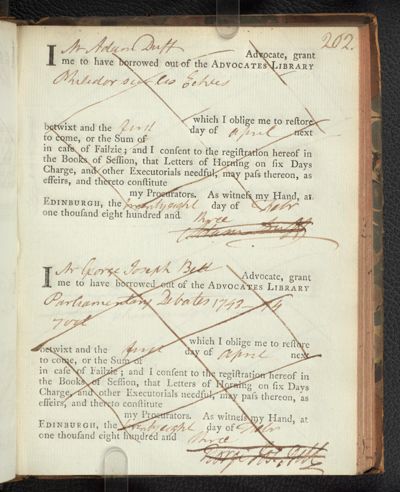 202.
I Mr Adam Duff Advocate, grant
me to have borrowed out of the ADVOCATES LIBRARY
Philidor sur les Echecs
which I oblige me to restore
betwixt and the first day of april next
to come, or the Sum of
in case of Failzie; and I consent to the registration hereof in
the Books of Session, that Letters of Horning on six Days
Charge, and other Executorials needful, may pass thereon, as
effeirs, and thereto constitute
my Procurators. As witness my Hand, at
EDINBURGH, the twentyeight day of Febr
one thousand eight hundred and three
Adam Duff
I Mr George Joseph Bell Advocate, grant
me to have borrowed out of the ADVOCATES LIBRARY
Parliamentary Debates 1742
7 vol
which I oblige me to restore
betwixt and the first day of april next
to come, or the Sum of
in case of Failzie; and I consent to the registration hereof in
the Books of Session, that Letters of Horning on six Days
Charge, and other Executorials needful, may pass thereon, as
effeirs, and thereto constitute
my Procurators. As witness my Hand, at
EDINBURGH, the twentyeight day of Febr
one thousand eight hundred and three
George Jos. Bell